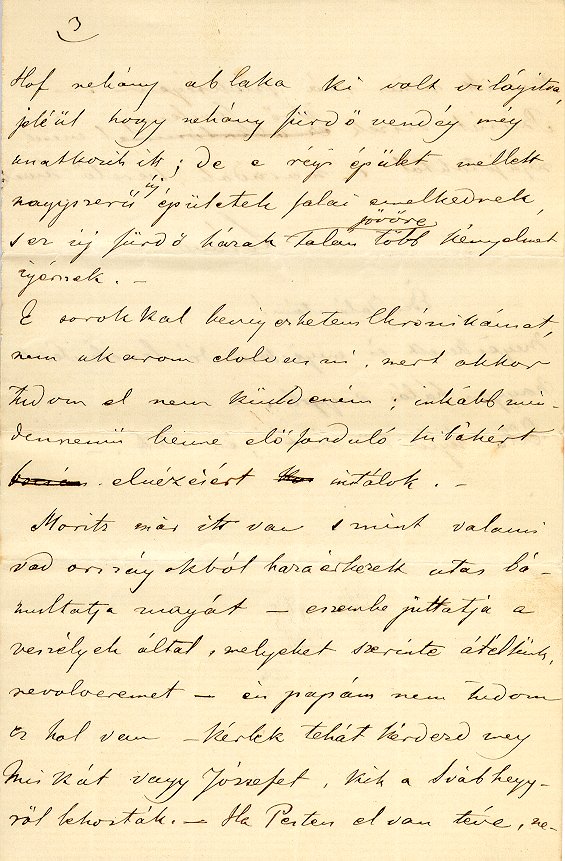 3
Hof nehány ablaka ki volt világítva
jeléül hogy nehány fürdő vendég még
unatkozik itt; de e régi épület mellett
nagyszerű új épületek falai emelkednek,
jövőre
s ez új fürdő házak talán több kényelmet
igérnek. –
E sorokkal bevégezhetem krónikámat,
nem akarom elolvasni, mert akkor
tudom el nem küldeném; inkább min-
dennemű benne előforduló hibákért
elnézésért instálok. –
Moritz már itt van s mint valami
vad országokból hazaérkezett utas bá-
multatja magát – eszembe juttatja a
veszélyek által, melyeket szerinte átéltünk,
revolveremet – én papám nem tudom
az hol van – kérlek tehát kérdezd meg
Miskát vagy Józsefet, kik a Svábhegy-
ről lehozták. – Ha Pesten el van téve, ne-